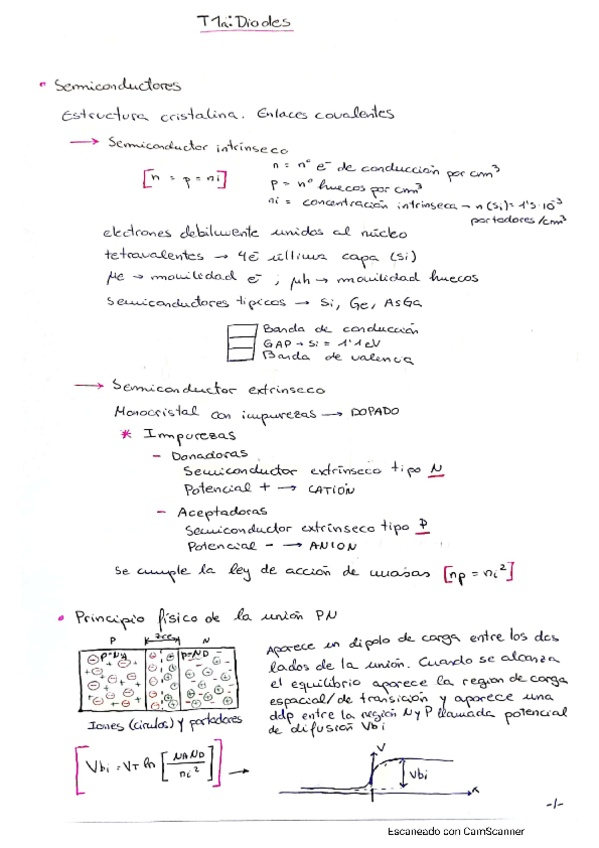 T1a: Diodos
• Semiconductores
Estructura cristalina. Enlaces covalentes
→ Semiconductor intrínseco
[n = p = ni]
n = nº e⁻ de conducción por cm³
p = nº huecos por cm³
ni = concentración intrínseca → n(Si) = 1'5·10⁻³
portadores/cm³
electrones débilmente unidos al núcleo
tetravalentes → 4e⁻ última capa (Si)
μe → movilidad e⁻ ; μh → movilidad huecos
Semiconductores típicos → Si, Ge, AsGa
Banda de conducción
GAP → Si = 1'1 eV
Banda de valencia
→ Semiconductor extrínseco
Monocristal con impurezas → DOPADO
* Impurezas
- Donadoras
Semiconductor extrínseco tipo N
Potencial + → CATIÓN
- Aceptadoras
Semiconductor extrínseco tipo P
Potencial - → ANION
Se cumple la ley de acción de masas [np = ni²]
• Principio físico de la unión PN
P N
p=NA p=ND
Iones (círculos) y portadores
Aparece un dipolo de carga entre los dos
lados de la unión. Cuando se alcanza
el equilibrio aparece la región de carga
espacial/de transición y aparece una
ddp entre la región N y P llamada potencial
de difusión Vbi
[Vbi = VT ln [NA ND / ni²]] →
V
Vbi
x
-1-
Escaneado con CamScanner